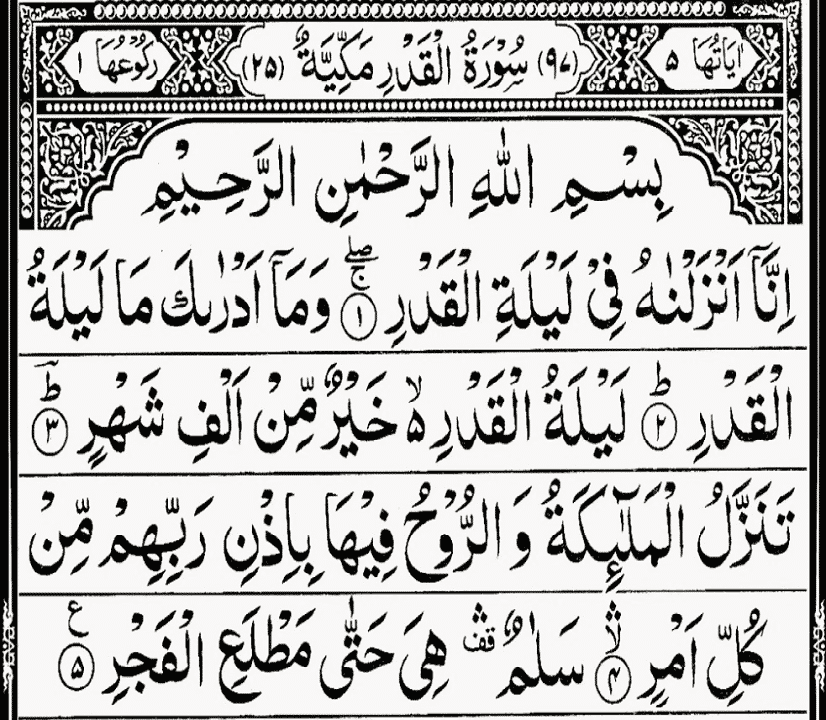 اٰیَاتُهَا ۵ (۹۷) سُوْرَةُ الْقَدْرِ مَكِّیَّةٌ (۲۵) رُكُوْعُهَا ۱
بِسْمِ اللّٰهِ الرَّحْمٰنِ الرَّحِیْمِ
اِنَّاۤ اَنْزَلْنٰهُ فِیْ لَیْلَةِ الْقَدْرِ ۚۖ ۱ وَ مَاۤ اَدْرٰىكَ مَا لَیْلَةُ
الْقَدْرِ ؕ ۲ لَیْلَةُ الْقَدْرِ ۙ۬ۥ خَیْرٌ مِّنْ اَلْفِ شَهْرٍ ؕ ۳
تَنَزَّلُ الْمَلٰٓىِٕكَةُ وَ الرُّوْحُ فِیْهَا بِاِذْنِ رَبِّهِمْ مِّنْ
كُلِّ اَمْرٍ ۙۛ ۴ سَلٰمٌ ۛ۫ هِیَ حَتّٰى مَطْلَعِ الْفَجْرِ ع ۵